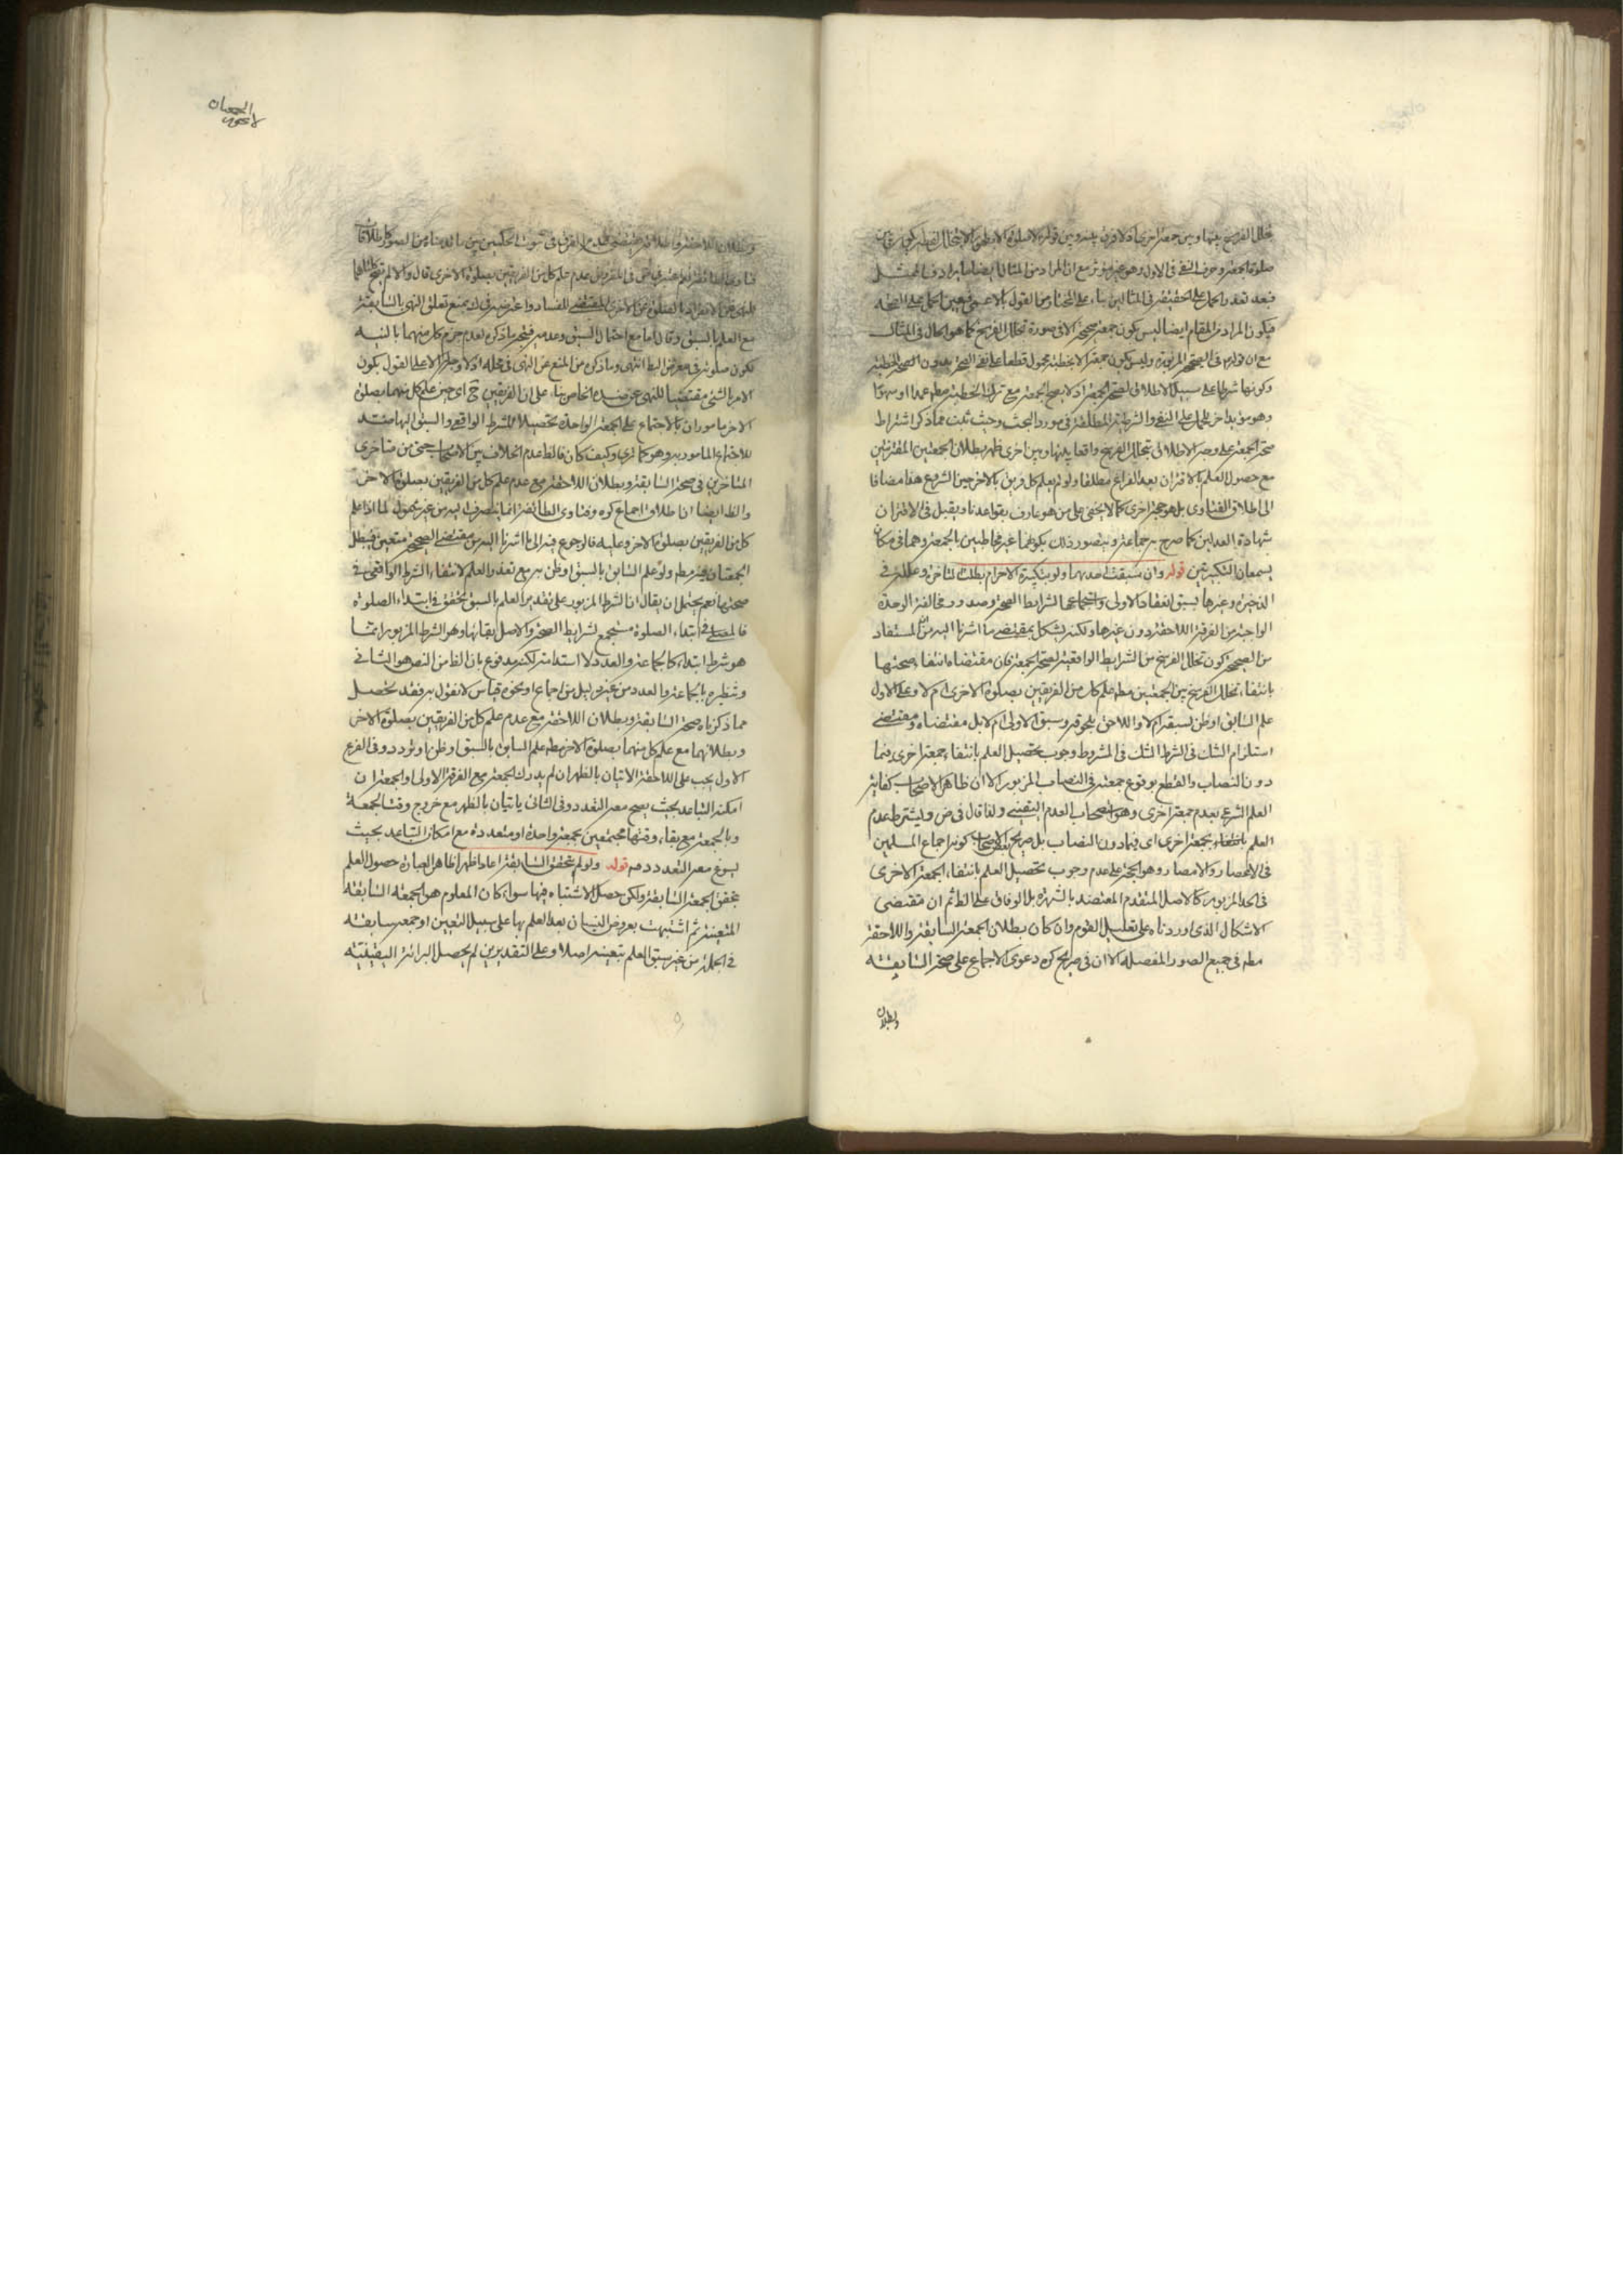 تخلل الفرسخ بينها وبين جمعة اخرى اذ لا فرق بينه وبين قوله لا صلوة الا بطهور الا
صلوة الجمعة وحرف النفى فى الاول وهو غير مؤثر مع ان المراد من المثال ايضا
فبعد تعذر الحمل على الحقيقة فى المثالين بناء على المختار من القول بالاعم فيتعين الحمل على الصحة
فيكون المراد من المقام ايضا ليس يكون جمعة صحيحة الا فى صورة تخلل الفرسخ كما هو الحال فى المثال
مع ان قوله فى الصحيح المزبور وليس يكون جمعة الا بخطبة محمول قطعا على نفى الصحة بدون الخطبة
وكونها شرطا على سبيل الاطلاق لصحة الجمعة اذ لا يصح الجمعة مع ترك الخطبة مطم عمدا او سهوا
وهو مؤيد اخر للحمل على النفى والشرطية المطلقة فى مورد البحث وحيث ثبت مما ذكر اشتراط
صحة الجمعة على وجه الاطلاق بتخلل الفرسخ واقعا بينها وبين اخرى ظهر بطلان الجمعتين المقترنتين
مع حصول العلم بالاقتران بعد الفراغ مطلقا ولو لم يعلم كل فريق بالاخر حين الشروع هذا مضافا
الى اطلاق الفتاوى بل هو حجة اخرى كما لا يخفى على من هو عارف بقواعدنا ويقبل فى الاقتران
شهادة العدلين كما صرح به جماعة ويتصور ذلك بكونهما غير مخاطبين بالجمعة وهما فى مكان
يسمعان التكبيرتين قوله وان سبقت احديهما ولو بتكبيرة الاحرام بطلت المتاخرة وعلله فى
الذخيرة وغيرها بسبق انعقاد الاولى واستجماعها لشرايط الصحة وصدور
الواجبة من الفرقة اللاحقة دون غيرها ولكنه يشكل بمقتضى ما اشرنا اليه من المستفاد
من الصحيحة كون تخلل الفرسخ من الشرايط الواقعية لصحة الجمعة فان مقتضاه انتفاء صحتها
بانتفاء تخلل الفرسخ بين الجمعتين مطم علم كل من الفريقين بصلوة الاخرى ام لا وعلى الاول
علم السابق او ظن لسبقه ام لا واللاحق بلحوقه وسبق الاولى ام لا بل مقتضاه ومقتضى
استلزام الشك فى الشرط الشك فى المشروط وجوب تحصيل العلم بانتفاء جمعة اخرى فيما
دون النصاب والقطع بوقوع جمعته فى النصاب المزبور الا ان ظاهر الاصحاب كفاية
العلم الشرعى بعدم جمعة اخرى وهو استصحاب العدم اليقينى ولذا قال فى ض وليشترط عدم
العلم بجمعة اخرى اى فيما دون النصاب بل صريح كونه اجماع المسلمين
فى الاعصار والامصار وهو الحجة على عدم وجوب تحصيل العلم بانتفاء الجمعة الاخرى
فى الحد المزبور كالاصل المتقدم المعتضد بالشهرة بل الوفاق على الظ ثم ان مقتضى
الاشكال الذى اوردناه على تعليل القوم وان كان بطلان الجمعة السابقة واللاحقة
مطم فى جميع الصور المفصلة الا ان فى صريح كره دعوى الاجماع على صحة السابقة
وبطلان
الجمعتان
وبطلان اللاحقة واطلاقه يقتضى عدم الفرق فى ثبوت الحكمين بين ما قدمناه من الصور كاطلاق
فتاوى الطائفة نعم عن فى المفروض عدم علم كل من الفريقين بصلوة الاخرى قال والا لم تصح
للنهى عن الانفراد بالصلوة عن الاخرى المقتضى للفساد واعترضه فى ك بمنع تعلق النهى بالسابقة
مع العلم بالسبق وقال اما مع احتمال السبق وعدمه فيتجه ما ذكره لعدم جزم كل منهما بالنية
لكون صلوته فى معرض البطلان انتهى وما ذكره من المنع عن النهى فى محله اولا وجيه الا على القول بكون
الامر بالشئ مقتضيا للنهى عن ضده الخاص بناء على ان الفريقين ح اى حين علم كل منهما بصلوة
الاخر ماموران بالاجتماع على الجمعة الواحدة تحصيلا للشرط الواقعى والسبق اليها ضد
للاجتماع المامور به وهو كما ترى وكيف كان فالظ عدم الخلاف بين الاصحاب حتى من متاخرى
المتاخرين فى صحة السابقة وبطلان اللاحقة مع عدم علم كل من الفريقين بصلوة الاخر
والظ ايضا ان اطلاق اجماع كره وفتاوى الطائفة انما ينصرف اليه من غير شمول لما اذا علم
كل من الفريقين بصلوة الاخر وعليه فالرجوع فيه الى ما اشرنا اليه من مقتضى الصحيحة متعين فيبطل
الجمعتان فيه مطم ولو علم السابق بالسبق او ظن به مع تعذر العلم لانتفاء الشرط الواقعى فى
صحتهما نعم يحتمل ان يقال ان الشرط المزبور على تقدير العلم بالسبق تحقق فى ابتداء الصلوة
فالمصلى فى ابتداء الصلوة مستجمع لشرايط الصحة والاصل بقائها وهو الشرط المزبور انما
هو شرط ابتداء كالجماعة والعدد لا استدامة لكنه مدفوع بان الظ من النص هو الثانى
وتنظيره بالجماعة والعدد من غير دليل من اجماع او نحوه قياس لا نقول به فقد تحصل
مما ذكرناه صحة السابقة وبطلان اللاحقة مع عدم علم كل من الفريقين بصلوة الاخر
وبطلانهما مع علم كل منهما بصلوة الاخر مطم علم السابق بالسبق او ظن او تردد وفى الفرع
الاول يجب على اللاحقة الاتيان بالظهر ان لم يدرك الجمعة مع الفرقة الاولى او الجمعة ان
امكنه التباعد بحيث يصح معه التعدد وفى الثانى ياتيان بالظهر مع خروج وقت الجمعة
وبالجمعة مع بقاء وقتها مجتمعين بجمعة واحدة او متعددة مع امكان التباعد بحيث
يسوغ معه التعدد قوله ولو لم يتحقق السابقة اعادا ظهرا ظاهر العبارة حصول العلم
بتحقق الجمعة السابقة ولكن حصل الاشتباه فيها سواء كان المعلوم هو الجمعة السابقة
المتعينة ثم اشتبهت بعروض النسيان بعد العلم بها على سبيل التعيين او جمعة سابقة
فى الجملة من غير سبق العلم بتعينه اصلا وعلى التقديرين لم يحصل البرائة اليقينية